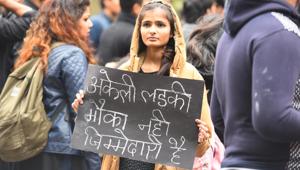 अकेली लडकी
मौका नही
जिम्मेदारी है